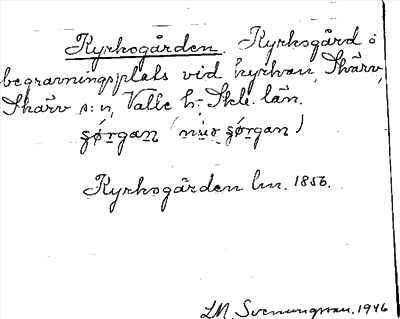 Kyrkogården. Kyrkogård o
begravningsplats vid kyrkan, Skärv,
Skärv s:n, Valle h. Skbl. län.
Kyrkogården lm. 1856.
Svenungsson. 1946